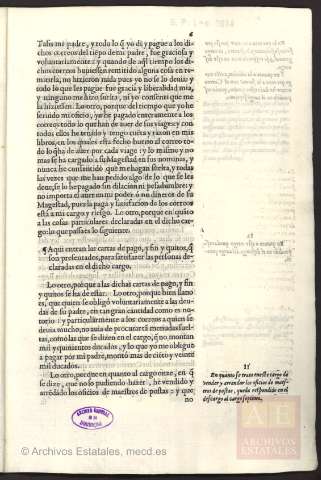 6
Tassis mi padre, y todo lo q̃ yo di y pague a los di
chos correos del tiẽpo de mi padre, fue graciosa y
voluntariamente: y quando de aq̃l tiempo los di
chos correos huuiessen remitido alguna cosa en re
meterla, no hizieron nada pues yo no se lo deuia: y
todo lo que les pague fue gracia y liberalidad mia,
y ninguno me hizo suelta, ni yo consenti que me
la hiziessen. Lo otro, porque del tiempo que yo he
seruido mi oficio, yo he pagado enteramente a los
correos todo lo que han de auer de sus viages: y con
todos ellos he tenido y tengo cuẽta y razon en mis
libros, en los quales esta fecho bueno al correo to
do lo q̃ ha de auer por cada viage: y lo mismo y no
mas se ha cargado a su Magestad en sus nominas, y
nunca he consentido que me hagan suelta, y todas
las vezes que me han pedido algo de lo que se les
deue, se lo he pagado sin dilacion ni pesadumbre, y
no importa el auer mi poder ó no dineros de su
Magestad, pues la paga y satisfacion de los correos
está a mi cargo y riesgo. Lo otro, porque en quãto
a las cosas particulares declaradas en el dicho car
go: lo que passa es lo siguiente.
¶ Aqui entran las cartas de pago, y fin y quitos, q̃
son presentados, para satisfazer las personas de-
claradas en el dicho cargo.
Lo otro, porque a las dichas cartas de pago, y fin
y quitos se ha de estar. Lo otro, porque bien llano
es, que quien se obligó voluntariamente a las deu-
das de su padre, en tan gran cantidad como es no-
torio: y particularmente a los correos a quien se
deuia mucho, no auia de procurar q̃ me dias suel-
tas, como las que se dizen en el cargo, q̃ no montan
mil y quinientos ducados, y lo que yo me obligué
a pagar por mi padre, montó mas de ciẽto y veinte
mil ducados.
Lo otro, porque en quanto al cargo onze, en q̃
se dize, que no lo pudiendo hazer, he vendido y
arrẽdado los oficios de maestres de postas: y que
no
11
En quanto se trata mas este cargo de
vender y arrendar los oficios de maes-
tres de postas, queda respondido en el
descargo al cargo septimo.
ARCHIVO GENERAL
DE
SIMANCAS
AE
ARCHIVOS
ESTATALES
© Archivos Estatales, mecd.es